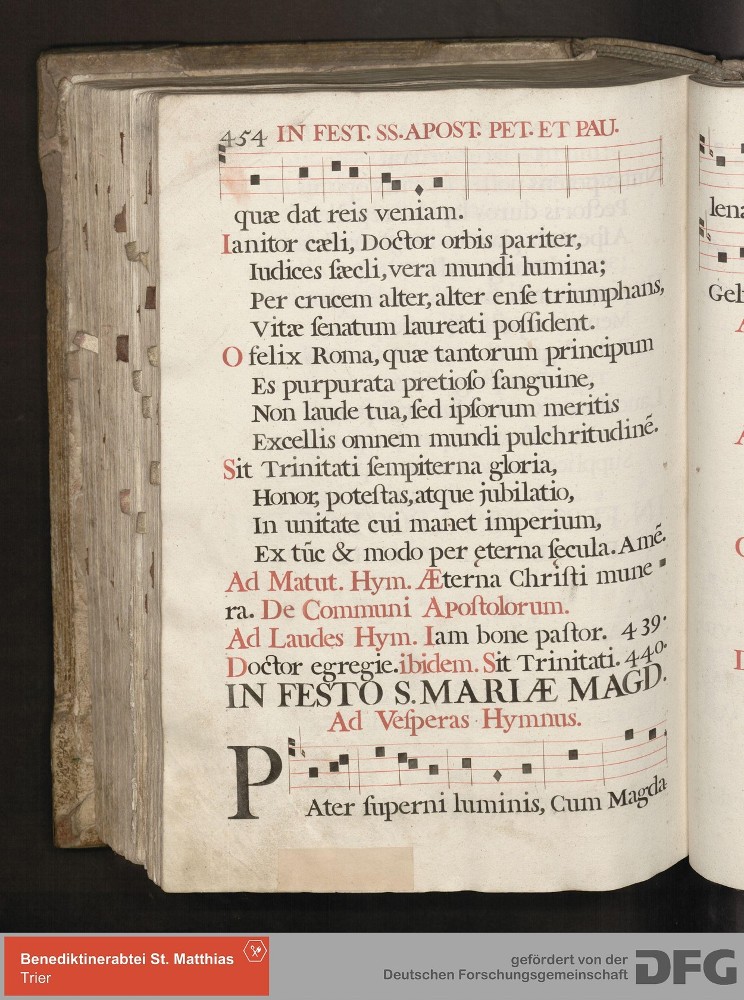 454 IN FEST. SS. APOST. PET. ET PAU.
quæ dat reis veniam.
Ianitor cæli, Doctor orbis pariter,
Iudices ſæcli, vera mundi lumina;
Per crucem alter, alter enſe triumphans,
Vitæ ſenatum laureati poſſident.
O felix Roma, quæ tantorum principum
Es purpurata pretioſo ſanguine,
Non laude tua, ſed ipſorum meritis
Excellis omnem mundi pulchritudinẽ.
Sit Trinitati ſempiterna gloria,
Honor, poteſtas, atque jubilatio,
In unitate cui manet imperium,
Ex tũc & modo per ęterna ſęcula. Amẽ.
Ad Matut. Hym. Æterna Chriſti mune
ra. De Communi Apoſtolorum.
Ad Laudes Hym. Iam bone paſtor. 439.
Doctor egregie. ibidem. Sit Trinitati. 440.
IN FESTO S. MARIÆ MAGD.
Ad Veſperas Hymnus.
PAter ſuperni luminis, Cum Magda
lena
Benediktinerabtei St. Matthias
Trier
gefördert von der
Deutschen Forschungsgemeinschaft
DFG